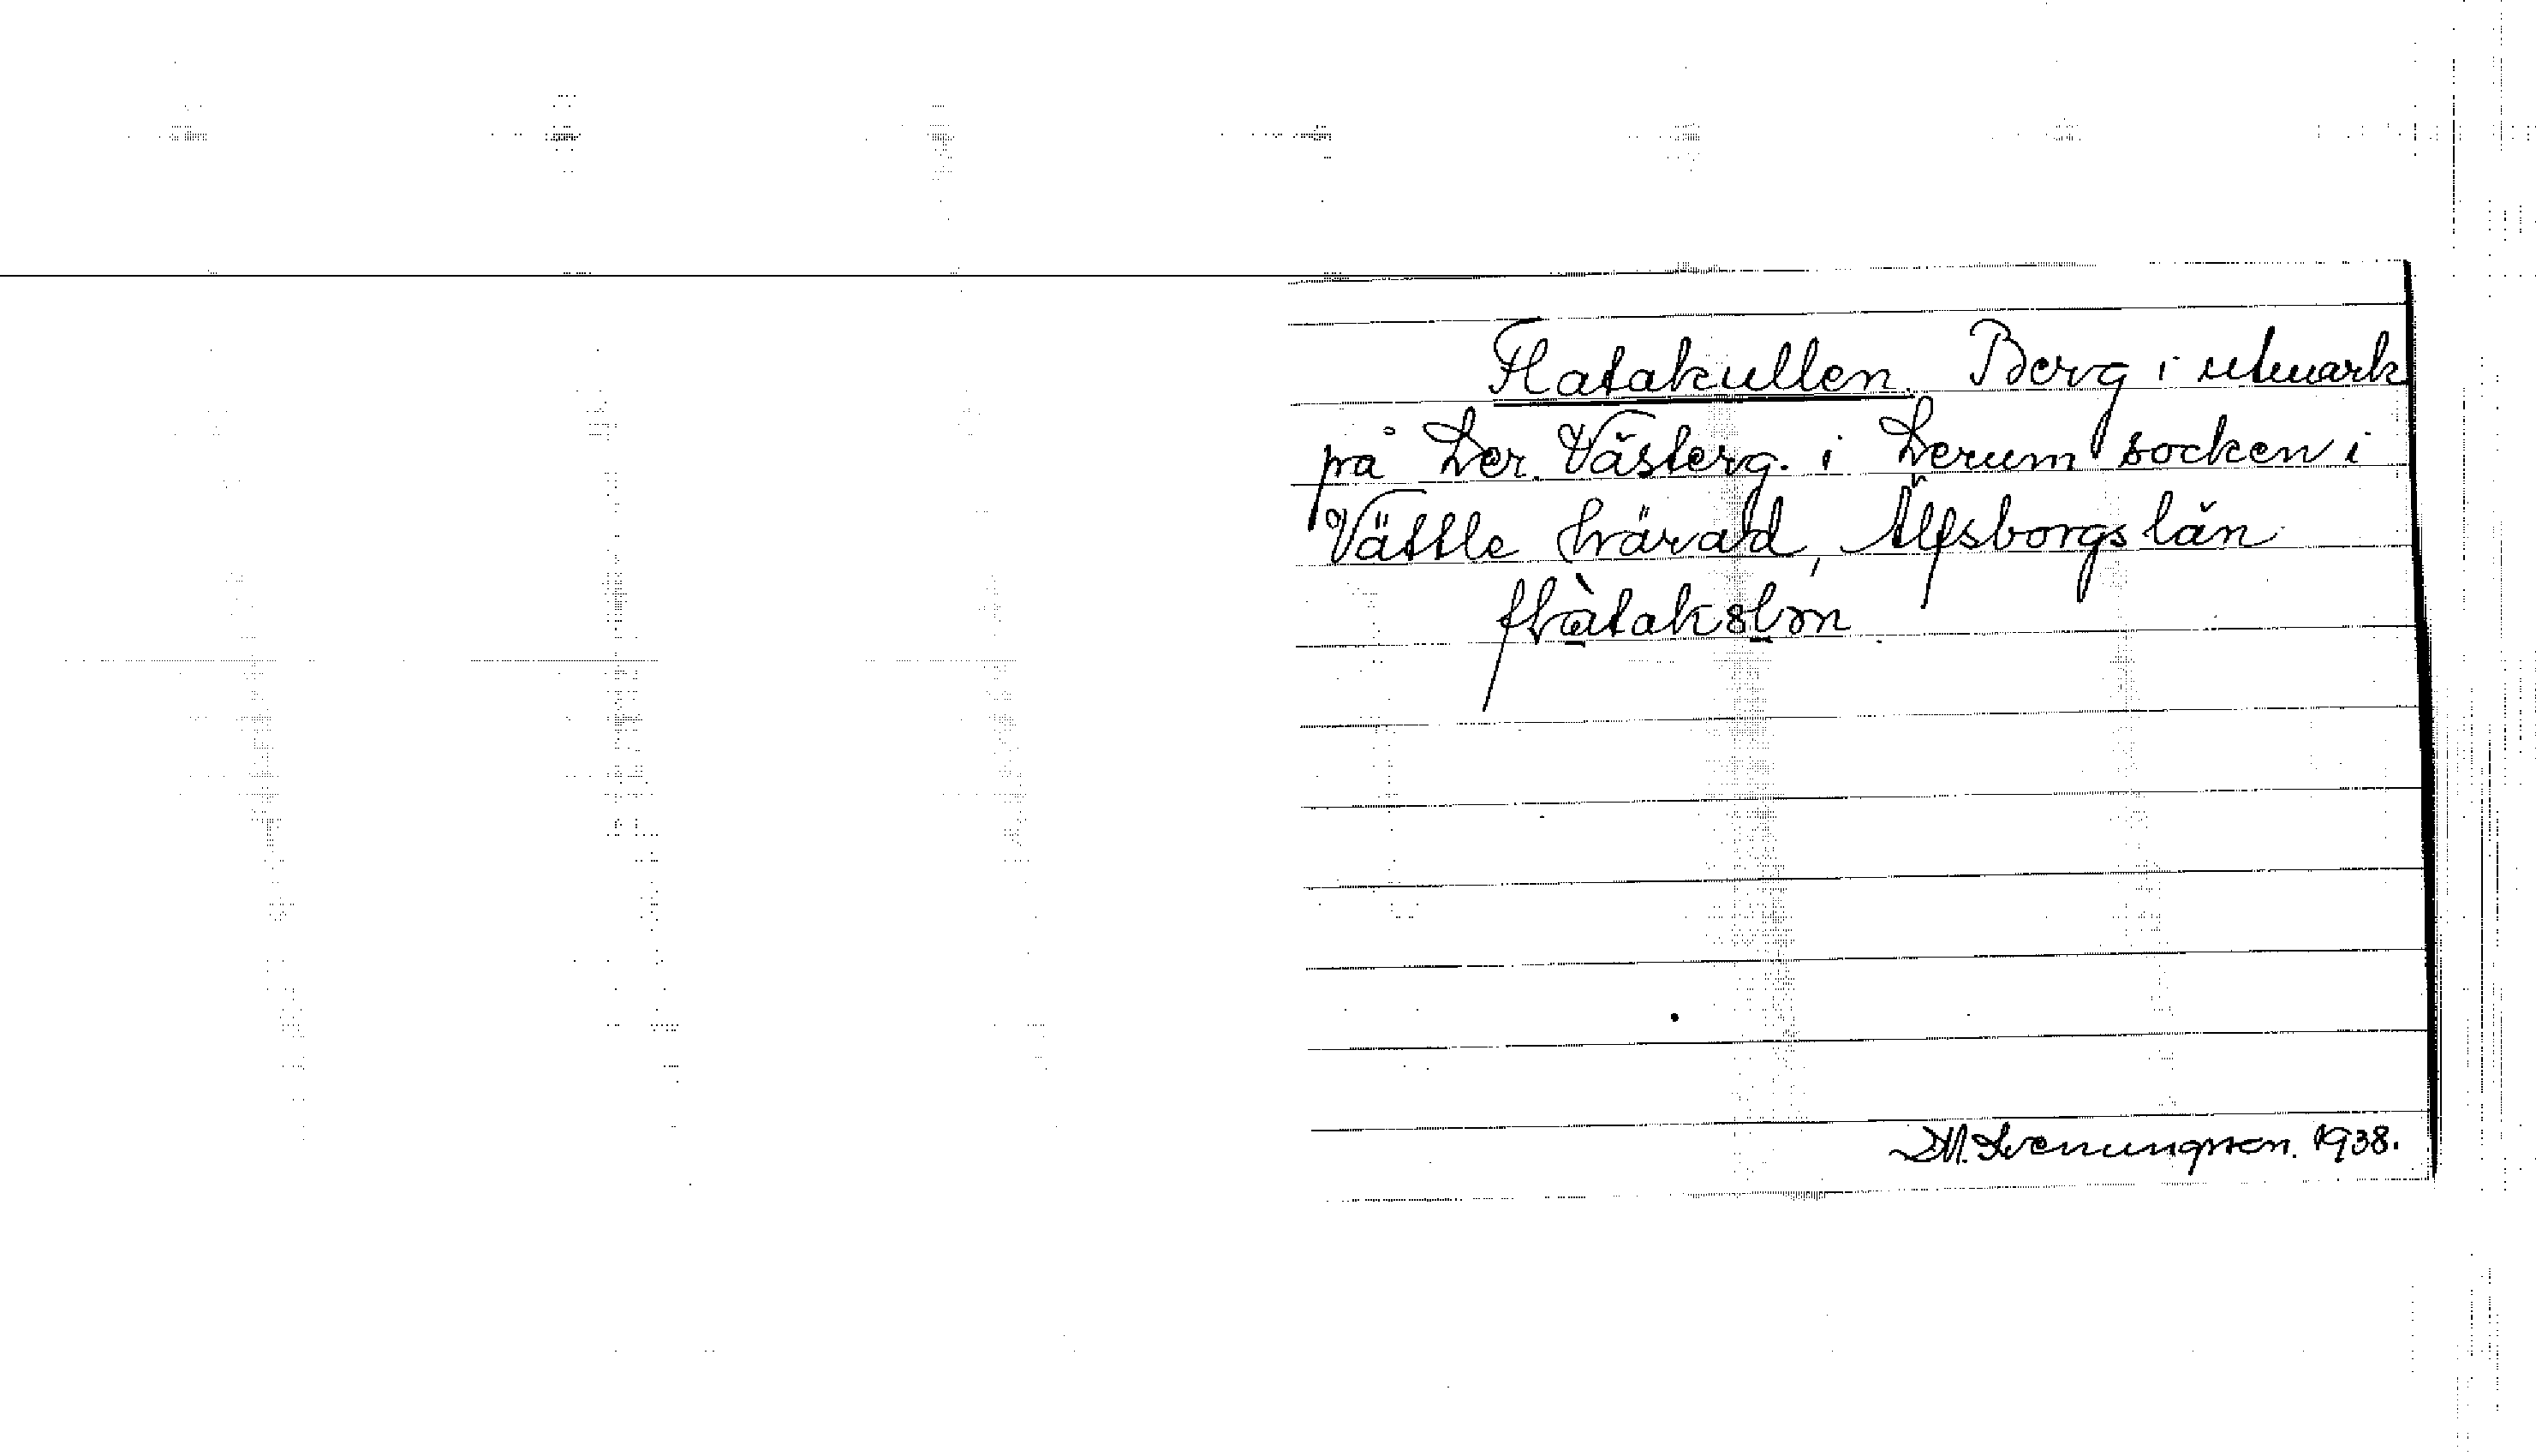 Flatakullen. Berg i utmark
på Ler. Västerg. i Lerum socken i
Vättle härad, Älfsborgs län
1938.